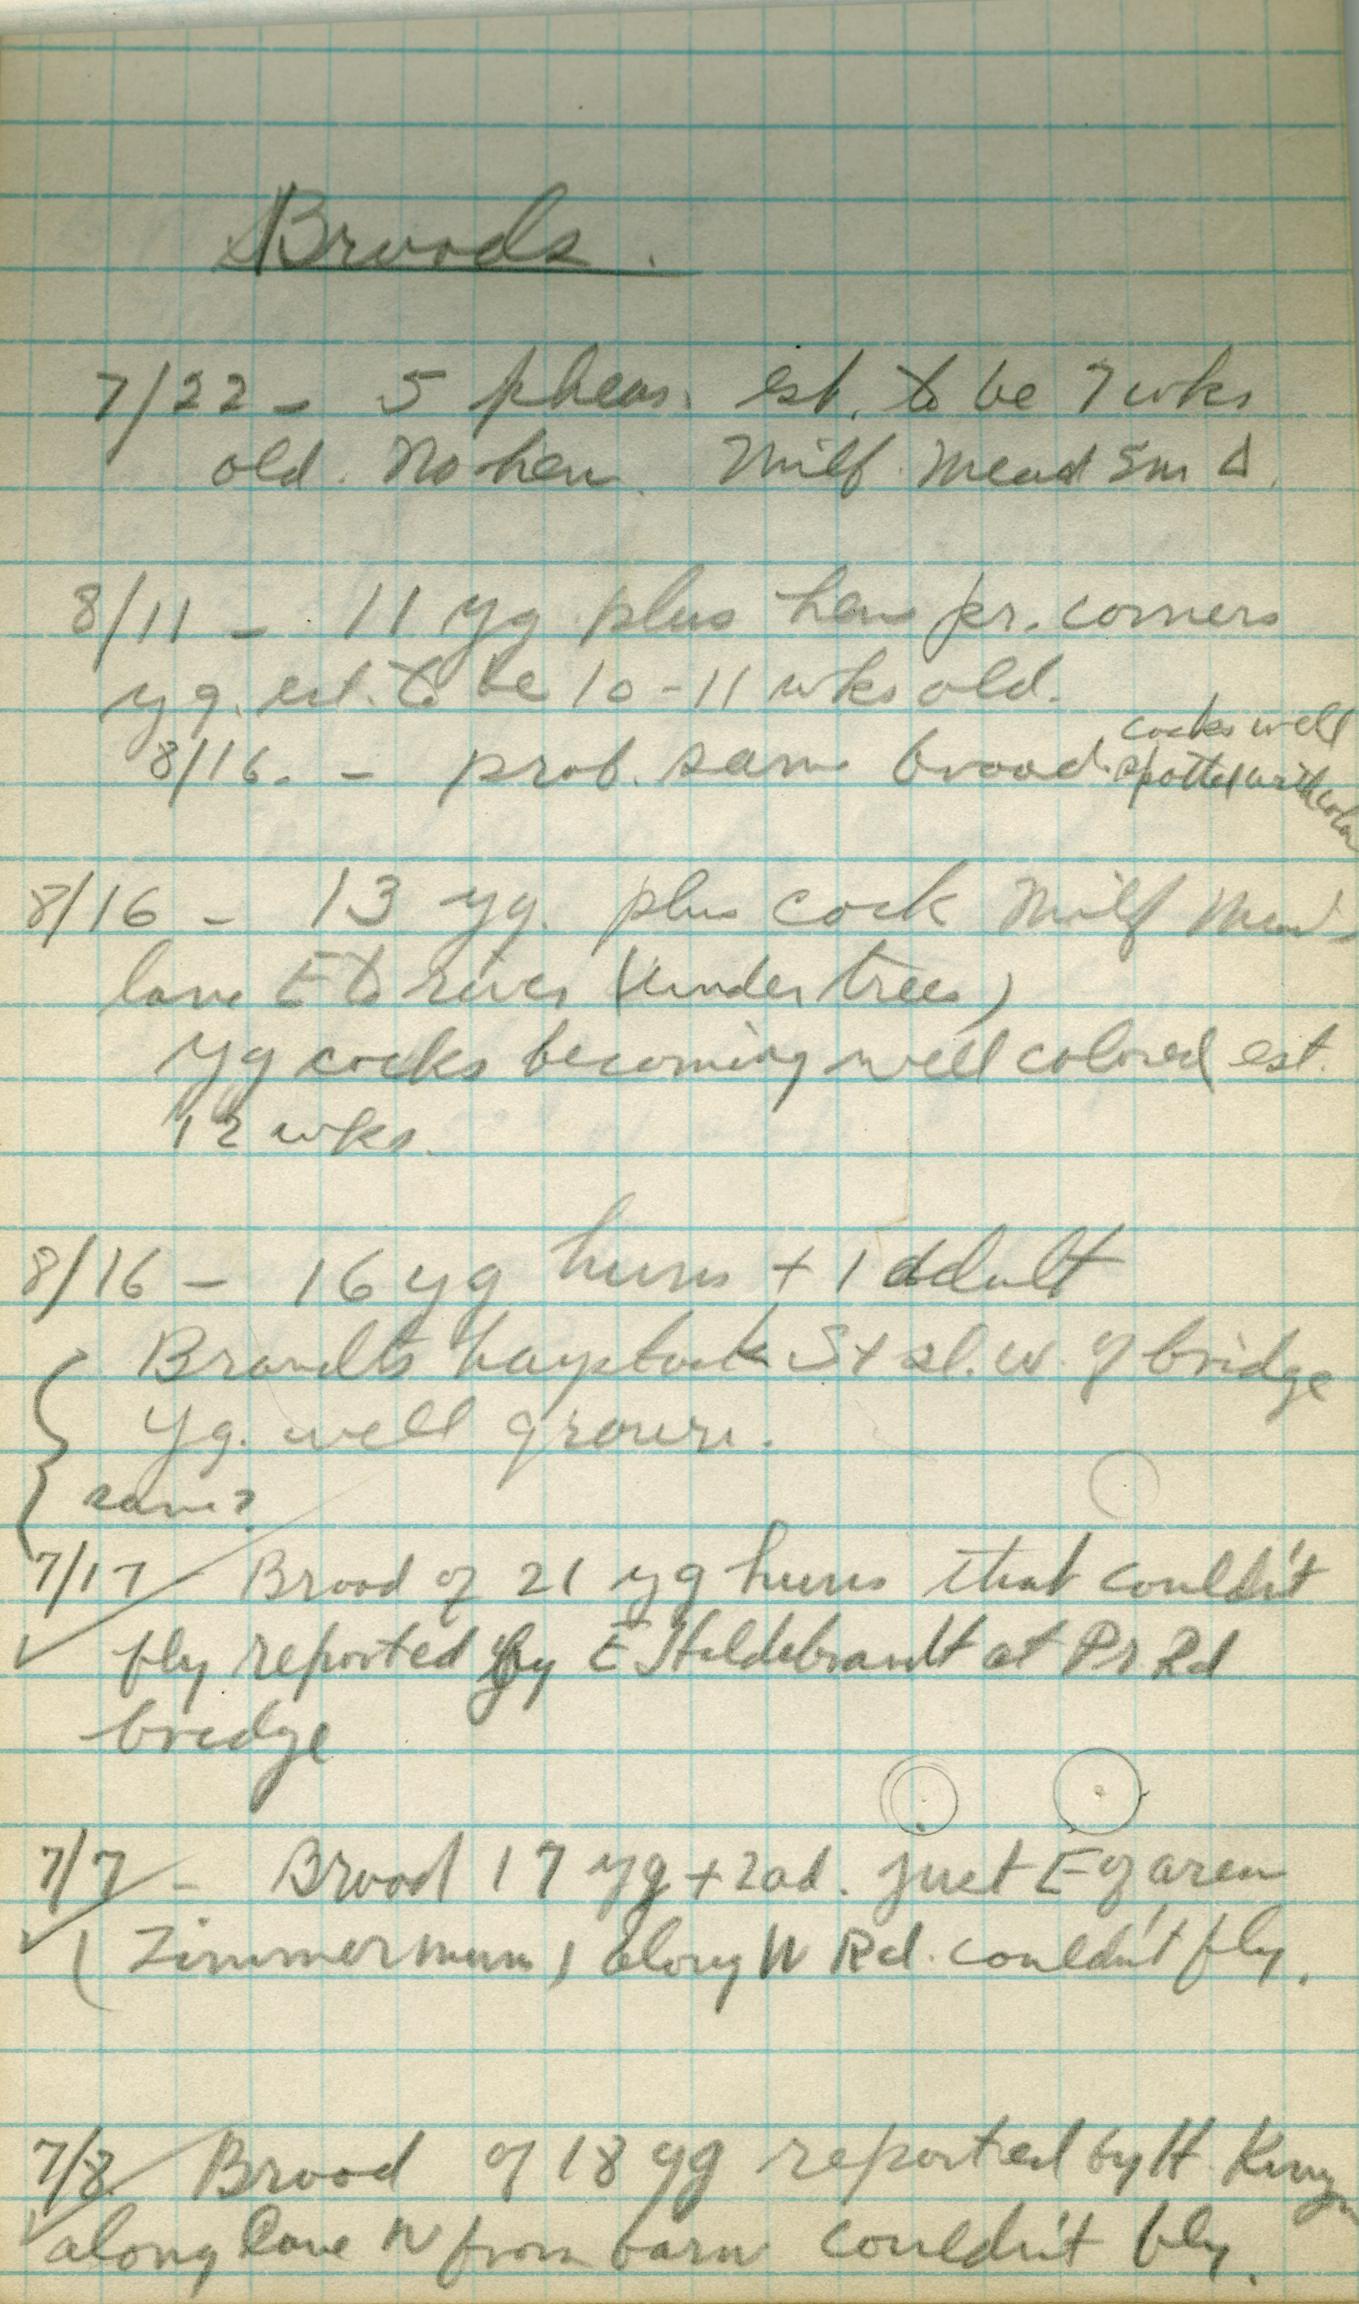 Broods.
7/22 - 5 pheas. est. to be 7 wks
old. No hen. Milf. Mead Sm Δ.
8/11 - 11 yg plus hen pr. corners
yg. est. to be 10-11 wks old.
8/16. - prob. same brood. cocks well
spotted with color
8/16 - 13 yg. plus cock Milf Mead
lane E to river (under trees)
Yg cocks becoming well colored est.
12 wks.
8/16 - 16 yg huns + 1 adult
Brandts haystack S + sl. W. of bridge
Yg. well grown.
same?
7/17 Brood of 21 yg huns that couldn't
fly reported by E Hildebrandt at Pr Rd
bridge
7/7 - Brood 17 yg + 2 ad. just E of area
(Zimmerman) along W Rd. couldn't fly.
7/8 Brood of 18 yg reported by H.
along lane N from barn couldn't fly.